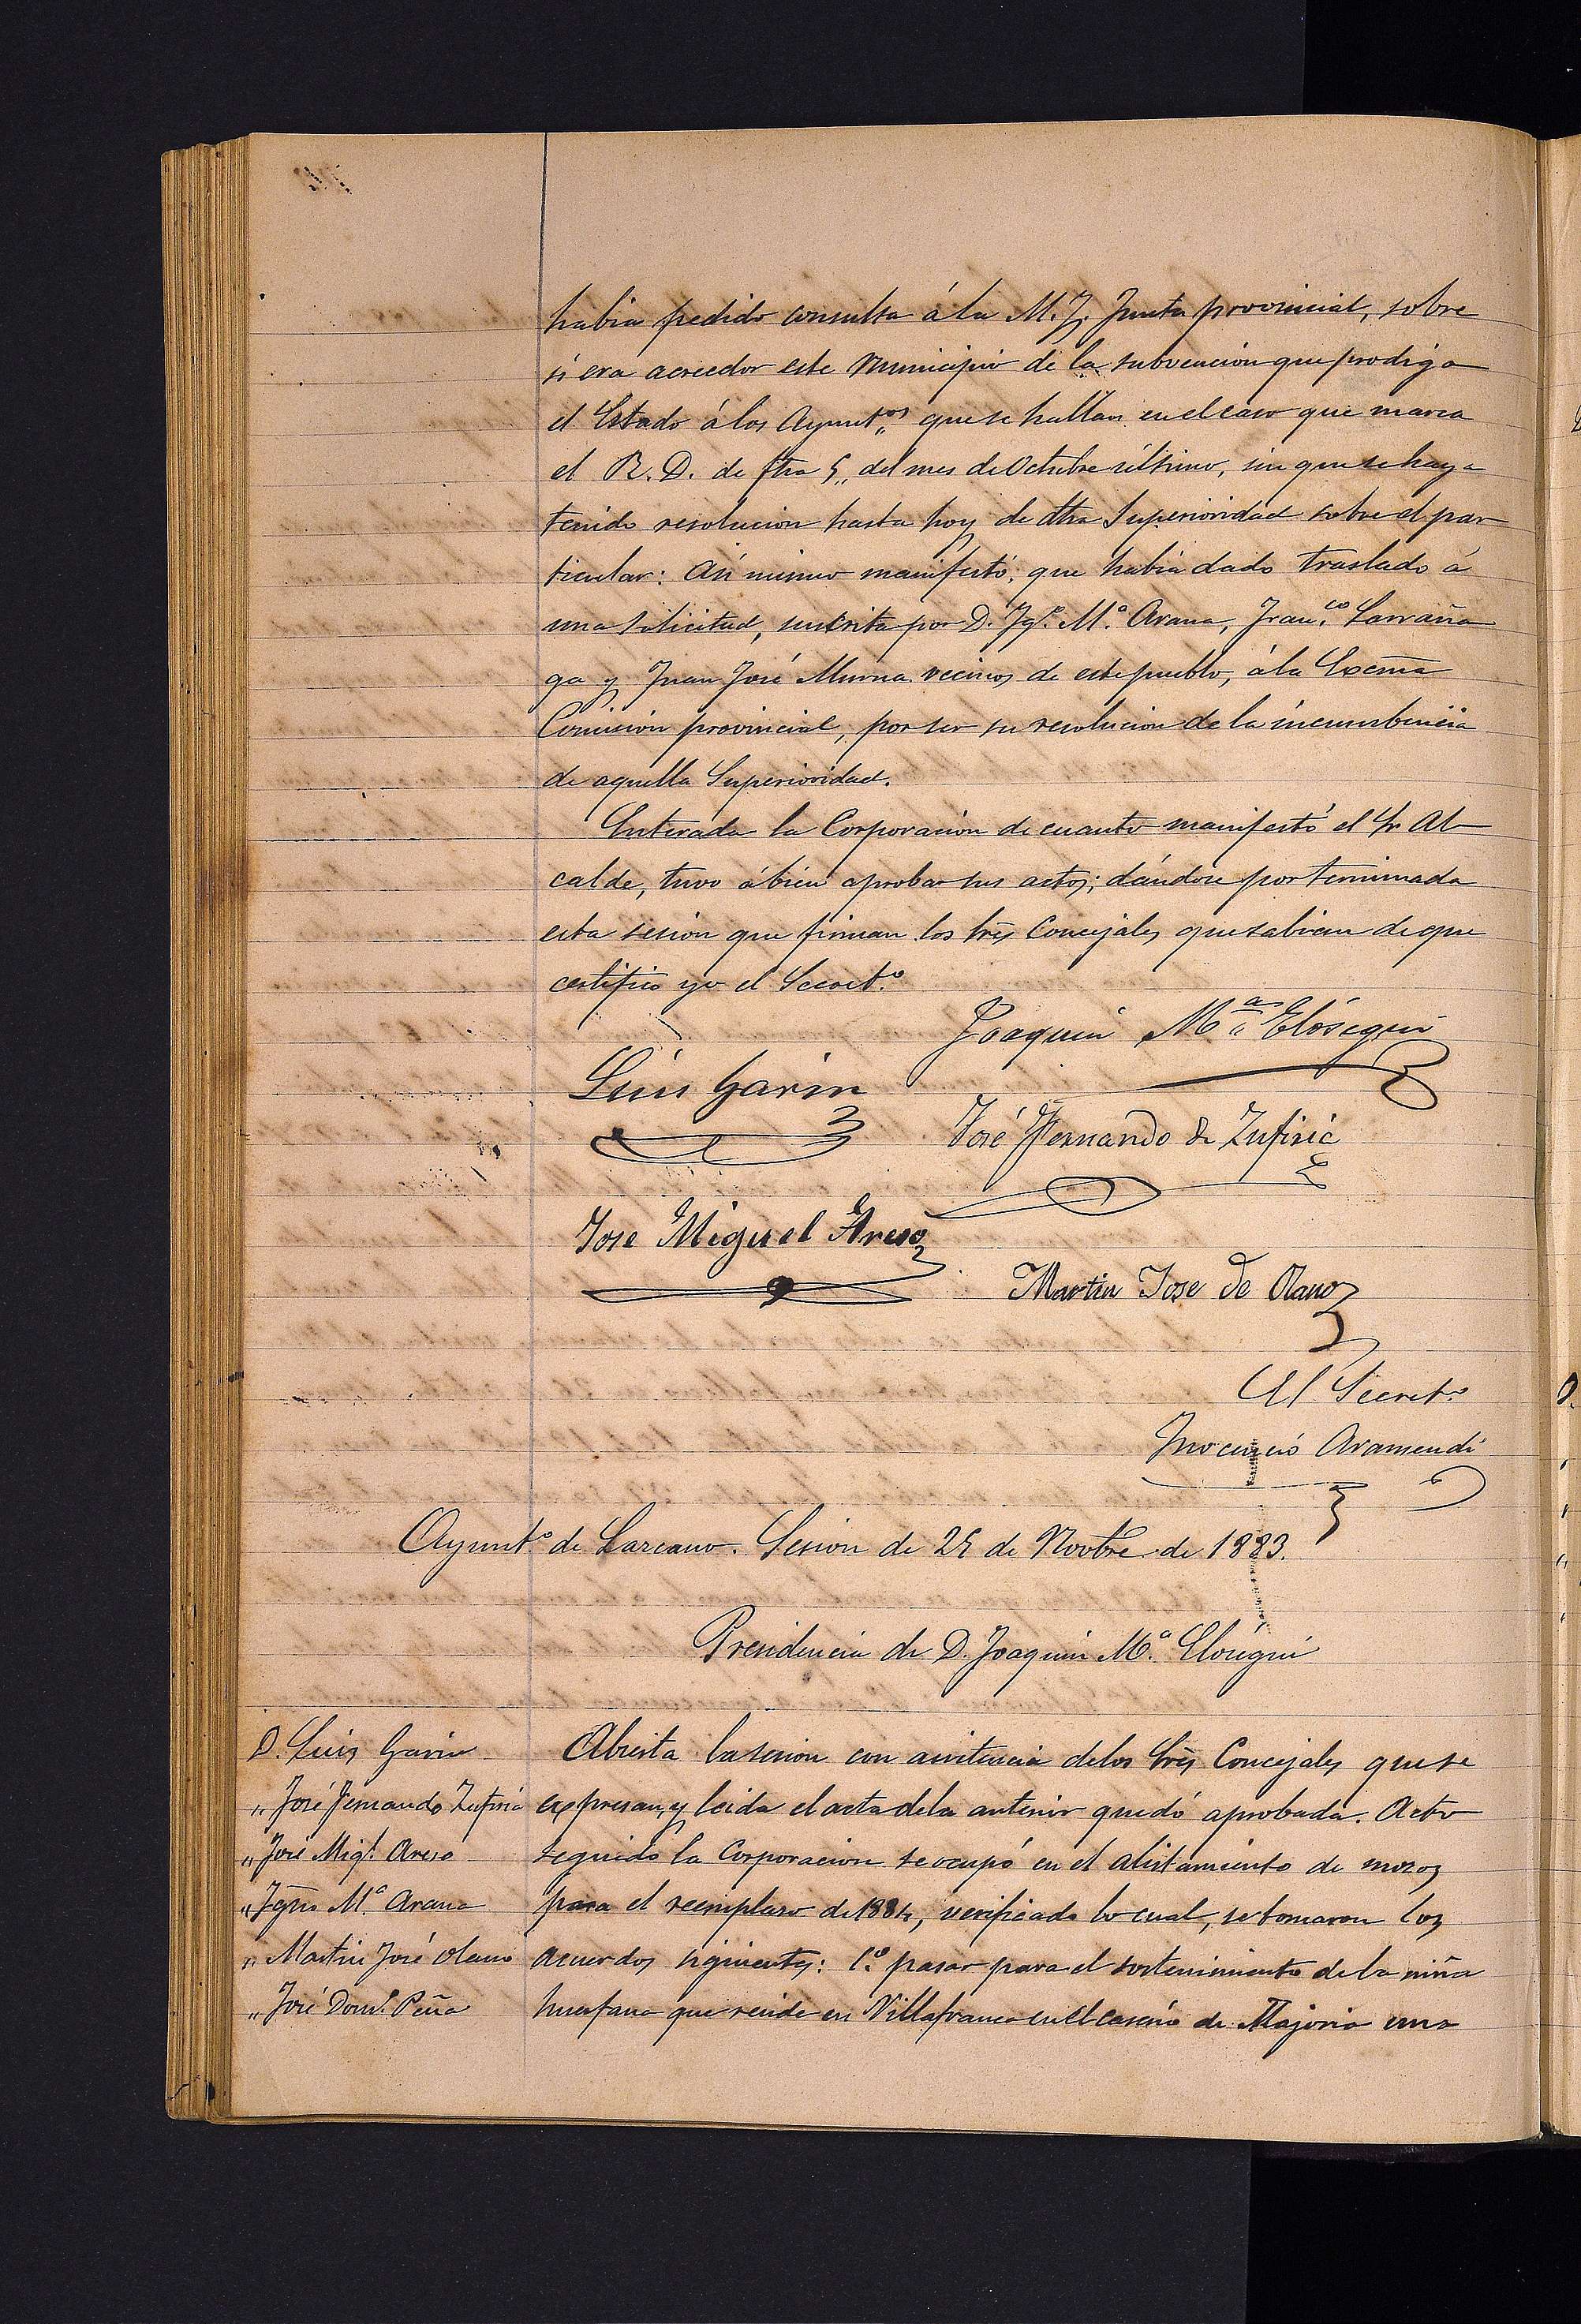 habia pedido consulta á la M. I. Junta provincial, sobre
si era acreedor este Municipio de la subvencion que prodiga
el Estado á los Ayunt.os que se hallan en el caso que marca
el R. D. de fha 5,, del mes de Octubre último, sin que se haya
tenido resolucion hasta hoy de dha Superioridad sobre el par
ticular: Asi mismo manifestó, que habia dado traslado á
una silicitud, suscrita por D. Ig.o M.a Arana, Fran.co Larraña
ga y Juan José Murua vecinos de este pueblo, á la Excma
Comision provincial, por ser su resolucion de la incumbencia
de aquella Superioridad.
Enterada la Corporacion de cuanto manifestó el Sr. Al
calde, tuvo á bien aprobar sus actos; dándose por terminada
esta sesion que firman los Sres Concejales que sabian de que
certifico yo el Secret.o
Joaquin M.a Elósegui
Luis Garin
José Fernando de Zufiria
Jose Miguel Areso
Martin Jose de Olano
El Secret.o
Inocencio Aramendi
Ayunt.o de Lazcano. Sesion de 25 de Novbre de 1883.
Presidencia de D. Joaquin M.a Elósegui
D. Luis Garin
,, José Fernando Zufiria
,, José Mig.l Areso
,, Igno M.a Arana
,, Martin José Olano
,, José Dom.o Peña
Abierta la sesion con asistencia de los Sres Concejales que se
expresan, y leida el acta de la anterior quedó aprobada. Acto
seguido la Corporacion se ocupó en el alistamiento de mozos
para el reemplazo de 1884, verificado lo cual, se tomaron los
acuerdos siguientes: 1.o pasar para el sostenimiento de la niña
huerfana que reside en Villafranca en el caserio de Majoria una